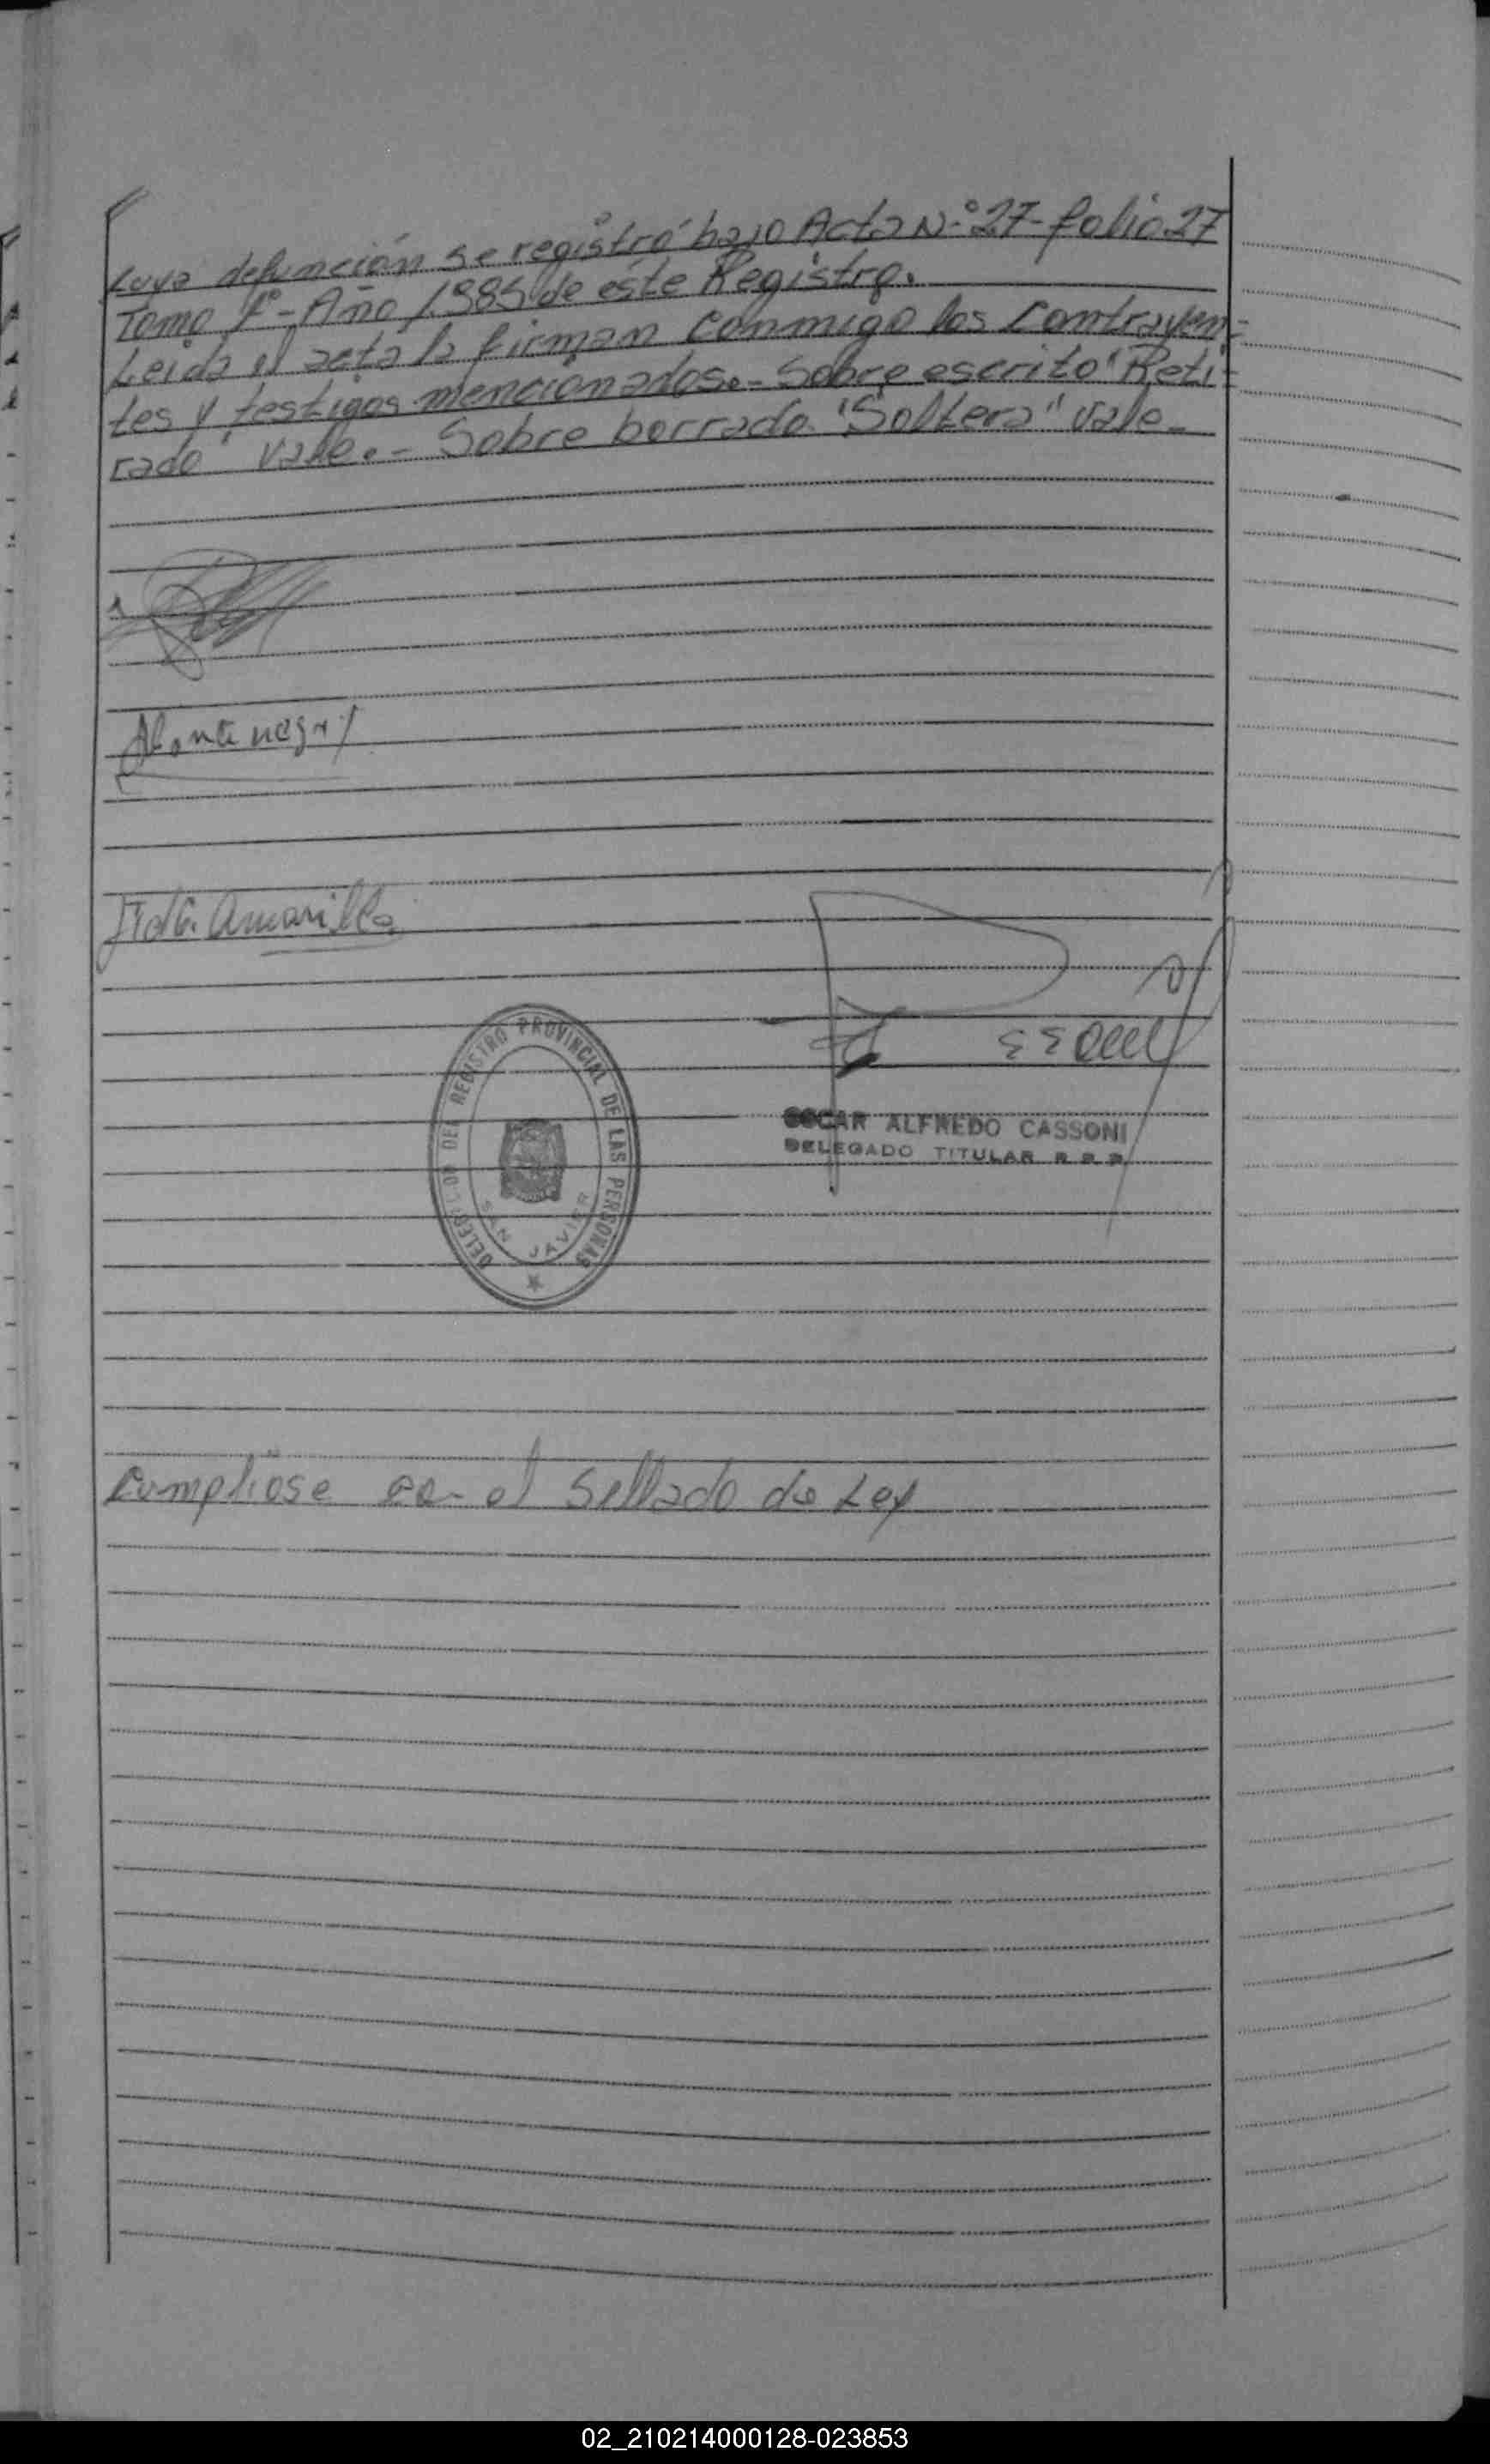 cuya defunción se registró bajo Acta N.° 27- folio 27
Tomo 1°- Año 1.985 de este Registro.
Leida el acta la firman conmigo los Contrayen=
tes y testigos mencionados.- Sobre escrito "Reti=
rado" vale.- Sobre borrado "Soltera" vale-
Amarilla
DELEGACION DEL REGISTRO PROVINCIAL DE LAS PERSONAS
SAN JAVIER
OSCAR ALFREDO CASSONI
DELEGADO TITULAR R. P. P.
Cumpliose con el Sellado de Ley
02_210214000128-023853